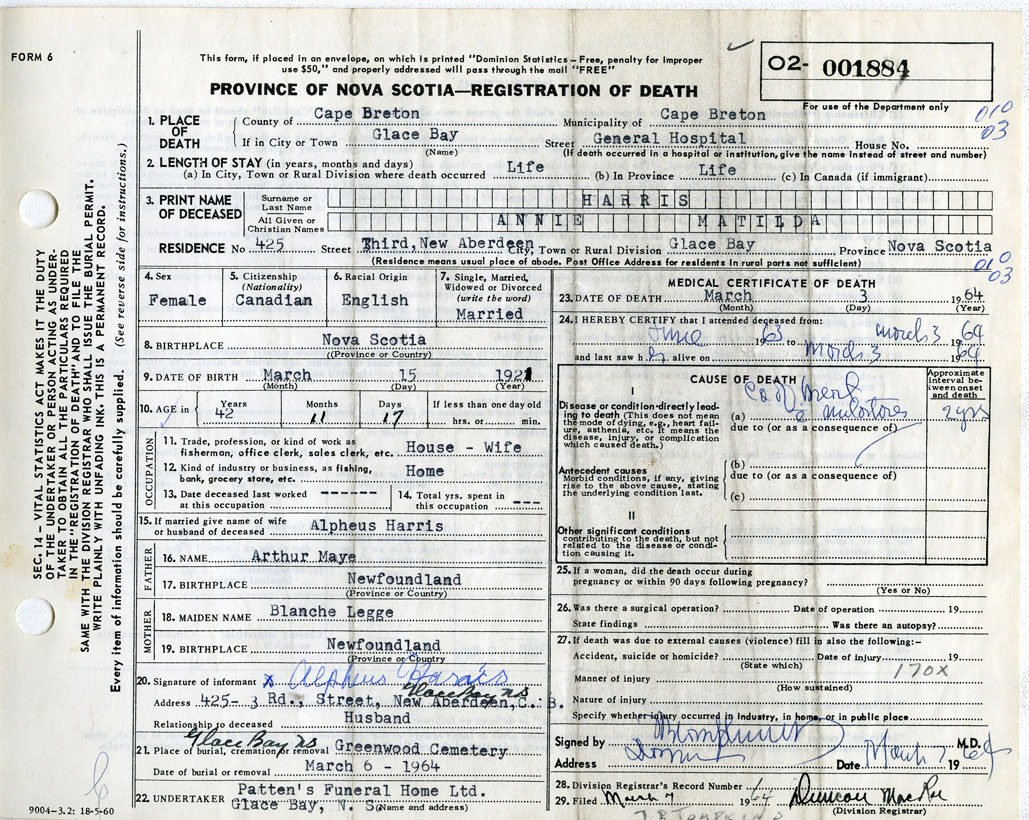 FORM 6
This form, if placed in an envelope, on which is printed "Dominion Statistics – Free, penalty for improper
use $50," and properly addressed will pass through the mail "FREE"
PROVINCE OF NOVA SCOTIA—REGISTRATION OF DEATH
O2- 001884
For use of the Department only
010
03
1. PLACE OF DEATH
County of Cape Breton Municipality of Cape Breton
If in City or Town Glace Bay Street General Hospital House No.
(Name) (If death occurred in a hospital or institution, give the name instead of street and number)
2. LENGTH OF STAY (in years, months and days)
(a) In City, Town or Rural Division where death occurred Life (b) In Province Life (c) In Canada (if immigrant)
3. PRINT NAME OF DECEASED
Surname or Last Name HARRIS
All Given or Christian Names ANNIE MATILDA
RESIDENCE No 425 Street Third, New Aberdeen City, Town or Rural Division Glace Bay Province Nova Scotia
(Residence means usual place of abode. Post Office Address for residents in rural parts not sufficient)
010
03
4. Sex
Female
5. Citizenship
(Nationality)
Canadian
6. Racial Origin
English
7. Single, Married,
Widowed or Divorced
(write the word)
Married
8. BIRTHPLACE Nova Scotia
(Province or Country)
9. DATE OF BIRTH March 15 1921
(Month) (Day) (Year)
10. AGE in Years Months Days If less than one day old
42 11 17 hrs. or min.
OCCUPATION
11. Trade, profession, or kind of work as
fisherman, office clerk, sales clerk, etc. House - Wife
12. Kind of industry or business, as fishing,
bank, grocery store, etc. Home
13. Date deceased last worked
at this occupation
14. Total yrs. spent in
this occupation
15. If married give name of wife
or husband of deceased Alpheus Harris
FATHER
16. NAME Arthur Maye
17. BIRTHPLACE Newfoundland
(Province or Country)
MOTHER
18. MAIDEN NAME Blanche Legge
19. BIRTHPLACE Newfoundland
(Province or Country
20. Signature of informant x Alpheus Harris
Glace Bay NS
Address 425- 3 Rd., Street, New Aberdeen, C. B.
Relationship to deceased Husband
Glace Bay, NS
21. Place of burial, cremation, or removal Greenwood Cemetery
Date of burial or removal March 6 - 1964
22. UNDERTAKER Patten's Funeral Home Ltd.
Glace Bay, N. S.
(Name and address)
MEDICAL CERTIFICATE OF DEATH
23. DATE OF DEATH March 3 1964
(Month) (Day) (Year)
24. I HEREBY CERTIFY that I attended deceased from:
June 1963 to March 3 1964
and last saw h er alive on March 3 1964
CAUSE OF DEATH
Approximate
interval be-
tween onset
and death
I
Disease or condition directly lead-
ing to death (This does not mean
the mode of dying, e.g., heart fail-
ure, asthenia, etc. It means the
disease, injury, or complication
which caused death.)
(a) Ca of Breast
2 yrs
due to (or as a consequence of)
Antecedent causes
Morbid conditions, if any, giving
rise to the above cause, stating
the underlying condition last.
(b)
due to (or as a consequence of)
(c)
II
Other significant conditions
contributing to the death, but not
related to the disease or condi-
tion causing it.
25. If a woman, did the death occur during
pregnancy or within 90 days following pregnancy?
(Yes or No)
26. Was there a surgical operation? Date of operation 19
State findings Was there an autopsy?
27. If death was due to external causes (violence) fill in also the following:–
Accident, suicide or homicide? Date of injury 19
(State which)
170X
Manner of injury
(How sustained)
Nature of injury
Specify whether injury occurred in industry, in home, or in public place
Signed by M.D.
Address Date March 7 1964
28. Division Registrar's Record Number
29. Filed March 7 1964 Duncan MacRae
(Division Registrar)
J R TOMPKINS
SEC. 14 – VITAL STATISTICS ACT MAKES IT THE DUTY
OF THE UNDERTAKER OR PERSON ACTING AS UNDER-
TAKER TO OBTAIN ALL THE PARTICULARS REQUIRED
IN THE "REGISTRATION OF DEATH" AND TO FILE THE
SAME WITH THE DIVISION REGISTRAR WHO SHALL ISSUE THE BURIAL PERMIT.
WRITE PLAINLY WITH UNFADING INK. THIS IS A PERMANENT RECORD.
Every item of information should be carefully supplied. (See reverse side for instructions.)
9004-3.2: 18-5-60